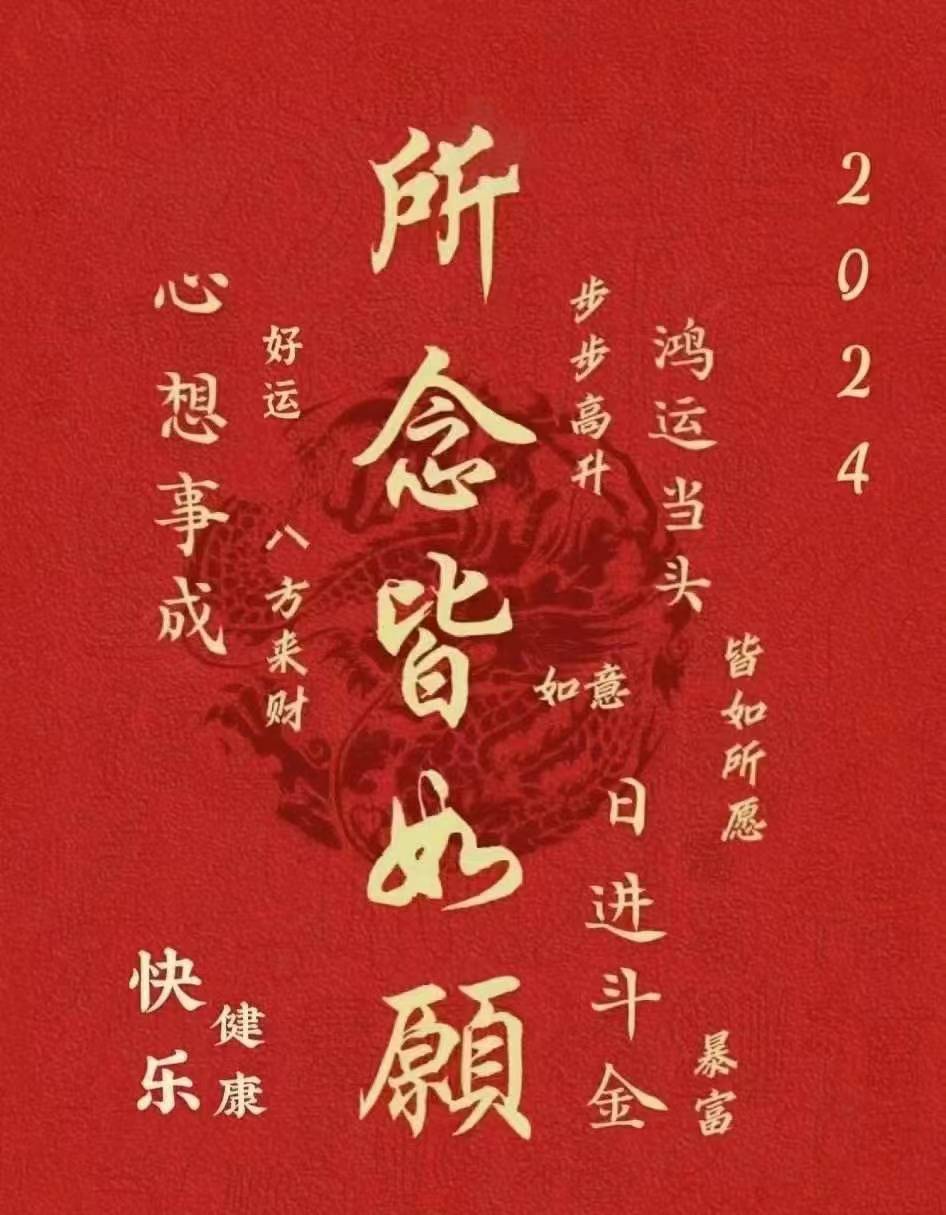 2024
皆如所愿
鸿运当头
暴富
日进斗金
步步高升
如意
所念皆如願
好运
八方来财
健康
心想事成
快乐